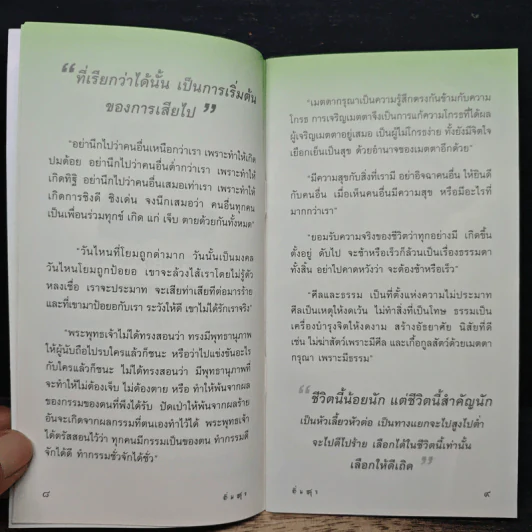 “ที่เรียกว่าได้นั้น เป็นการเริ่มต้น
ของการเสียไป ”
“อย่านึกไปว่าคนอื่นเหนือกว่าเรา เพราะทำให้เกิด
ปมด้อย อย่านึกไปว่าคนอื่นต่ำกว่าเรา เพราะทำให้
เกิดทิฐิ อย่านึกไปว่าคนอื่นเสมอเท่าเรา เพราะทำให้
เกิดการชิงดี ชิงเด่น จงนึกเสมอว่า คนอื่นทุกคน
เป็นเพื่อนร่วมทุกข์ เกิด แก่ เจ็บ ตายด้วยกันทั้งหมด”
“วันไหนที่โยมถูกด่ามาก วันนั้นเป็นมงคล
วันไหนโยมถูกป้อยอ เขาจะล้วงไส้เราโดยไม่รู้ตัว
หลงเชื่อ เราจะประมาท จะเสียท่าเสียทีต่อมารร้าย
และที่เขามาป้อยอกับเรา ระวังให้ดี เขาไม่ได้รักเราจริง”
“พระพุทธเจ้าไม่ได้ทรงสอนว่า ทรงมีพุทธานุภาพ
ให้ผู้นับถือไปรบใครแล้วก็ชนะ หรือว่าไปแข่งขันอะไร
กับใครแล้วก็ชนะ ไม่ได้ทรงสอนว่า มีพุทธานุภาพที่
จะทำให้ไม่ต้องเจ็บ ไม่ต้องตาย หรือ ทำให้พ้นจากผล
ของกรรมของตนที่พึงได้รับ ปัดเป่าให้พ้นจากผลร้าย
อันจะเกิดจากผลกรรมที่ตนเองทำไว้ได้ พระพุทธเจ้า
ได้ตรัสสอนไว้ว่า ทุกคนมีกรรมเป็นของตน ทำกรรมดี
จักได้ดี ทำกรรมชั่วจักได้ชั่ว”
๘
“เมตตากรุณาเป็นความรู้สึกตรงกันข้ามกับความ
โกรธ การเจริญเมตตาจึงเป็นการแก้ความโกรธที่ได้ผล
ผู้เจริญเมตตาอยู่เสมอ เป็นผู้ไม่โกรธง่าย ทั้งยังมีจิตใจ
เยือกเย็นเป็นสุข ด้วยอำนาจของเมตตาอีกด้วย”
“มีความสุขกับสิ่งที่เรามี อย่าอิจฉาคนอื่น ให้ยินดี
กับคนอื่น เมื่อเห็นคนอื่นมีความสุข หรือมีอะไรที่
มากกว่าเรา”
“ยอมรับความจริงของชีวิตว่าทุกอย่างมี เกิดขึ้น
ตั้งอยู่ ดับไป จะช้าหรือเร็วก็ล้วนเป็นเรื่องธรรมดา
ทั้งสิ้น อย่าไปคาดหวังว่า จะต้องช้าหรือเร็ว”
“ศีลและธรรม เป็นที่ตั้งแห่งความไม่ประมาท
ศีลเป็นเหตุให้งดเว้น ไม่ทำสิ่งที่เป็นโทษ ธรรมเป็น
เครื่องบำรุงจิตให้งดงาม สร้างอัธยาศัย นิสัยที่ดี
เช่น ไม่ฆ่าสัตว์เพราะมีศีล และเกื้อกูลสัตว์ด้วยเมตตา
กรุณา เพราะมีธรรม”
“ชีวิตนี้น้อยนัก แต่ชีวิตนี้สำคัญนัก
เป็นหัวเลี้ยวหัวต่อ เป็นทางแยกจะไปสูงไปต่ำ
จะไปดีไปร้าย เลือกได้ในชีวิตนี้เท่านั้น
เลือกให้ดีเถิด ”
๙